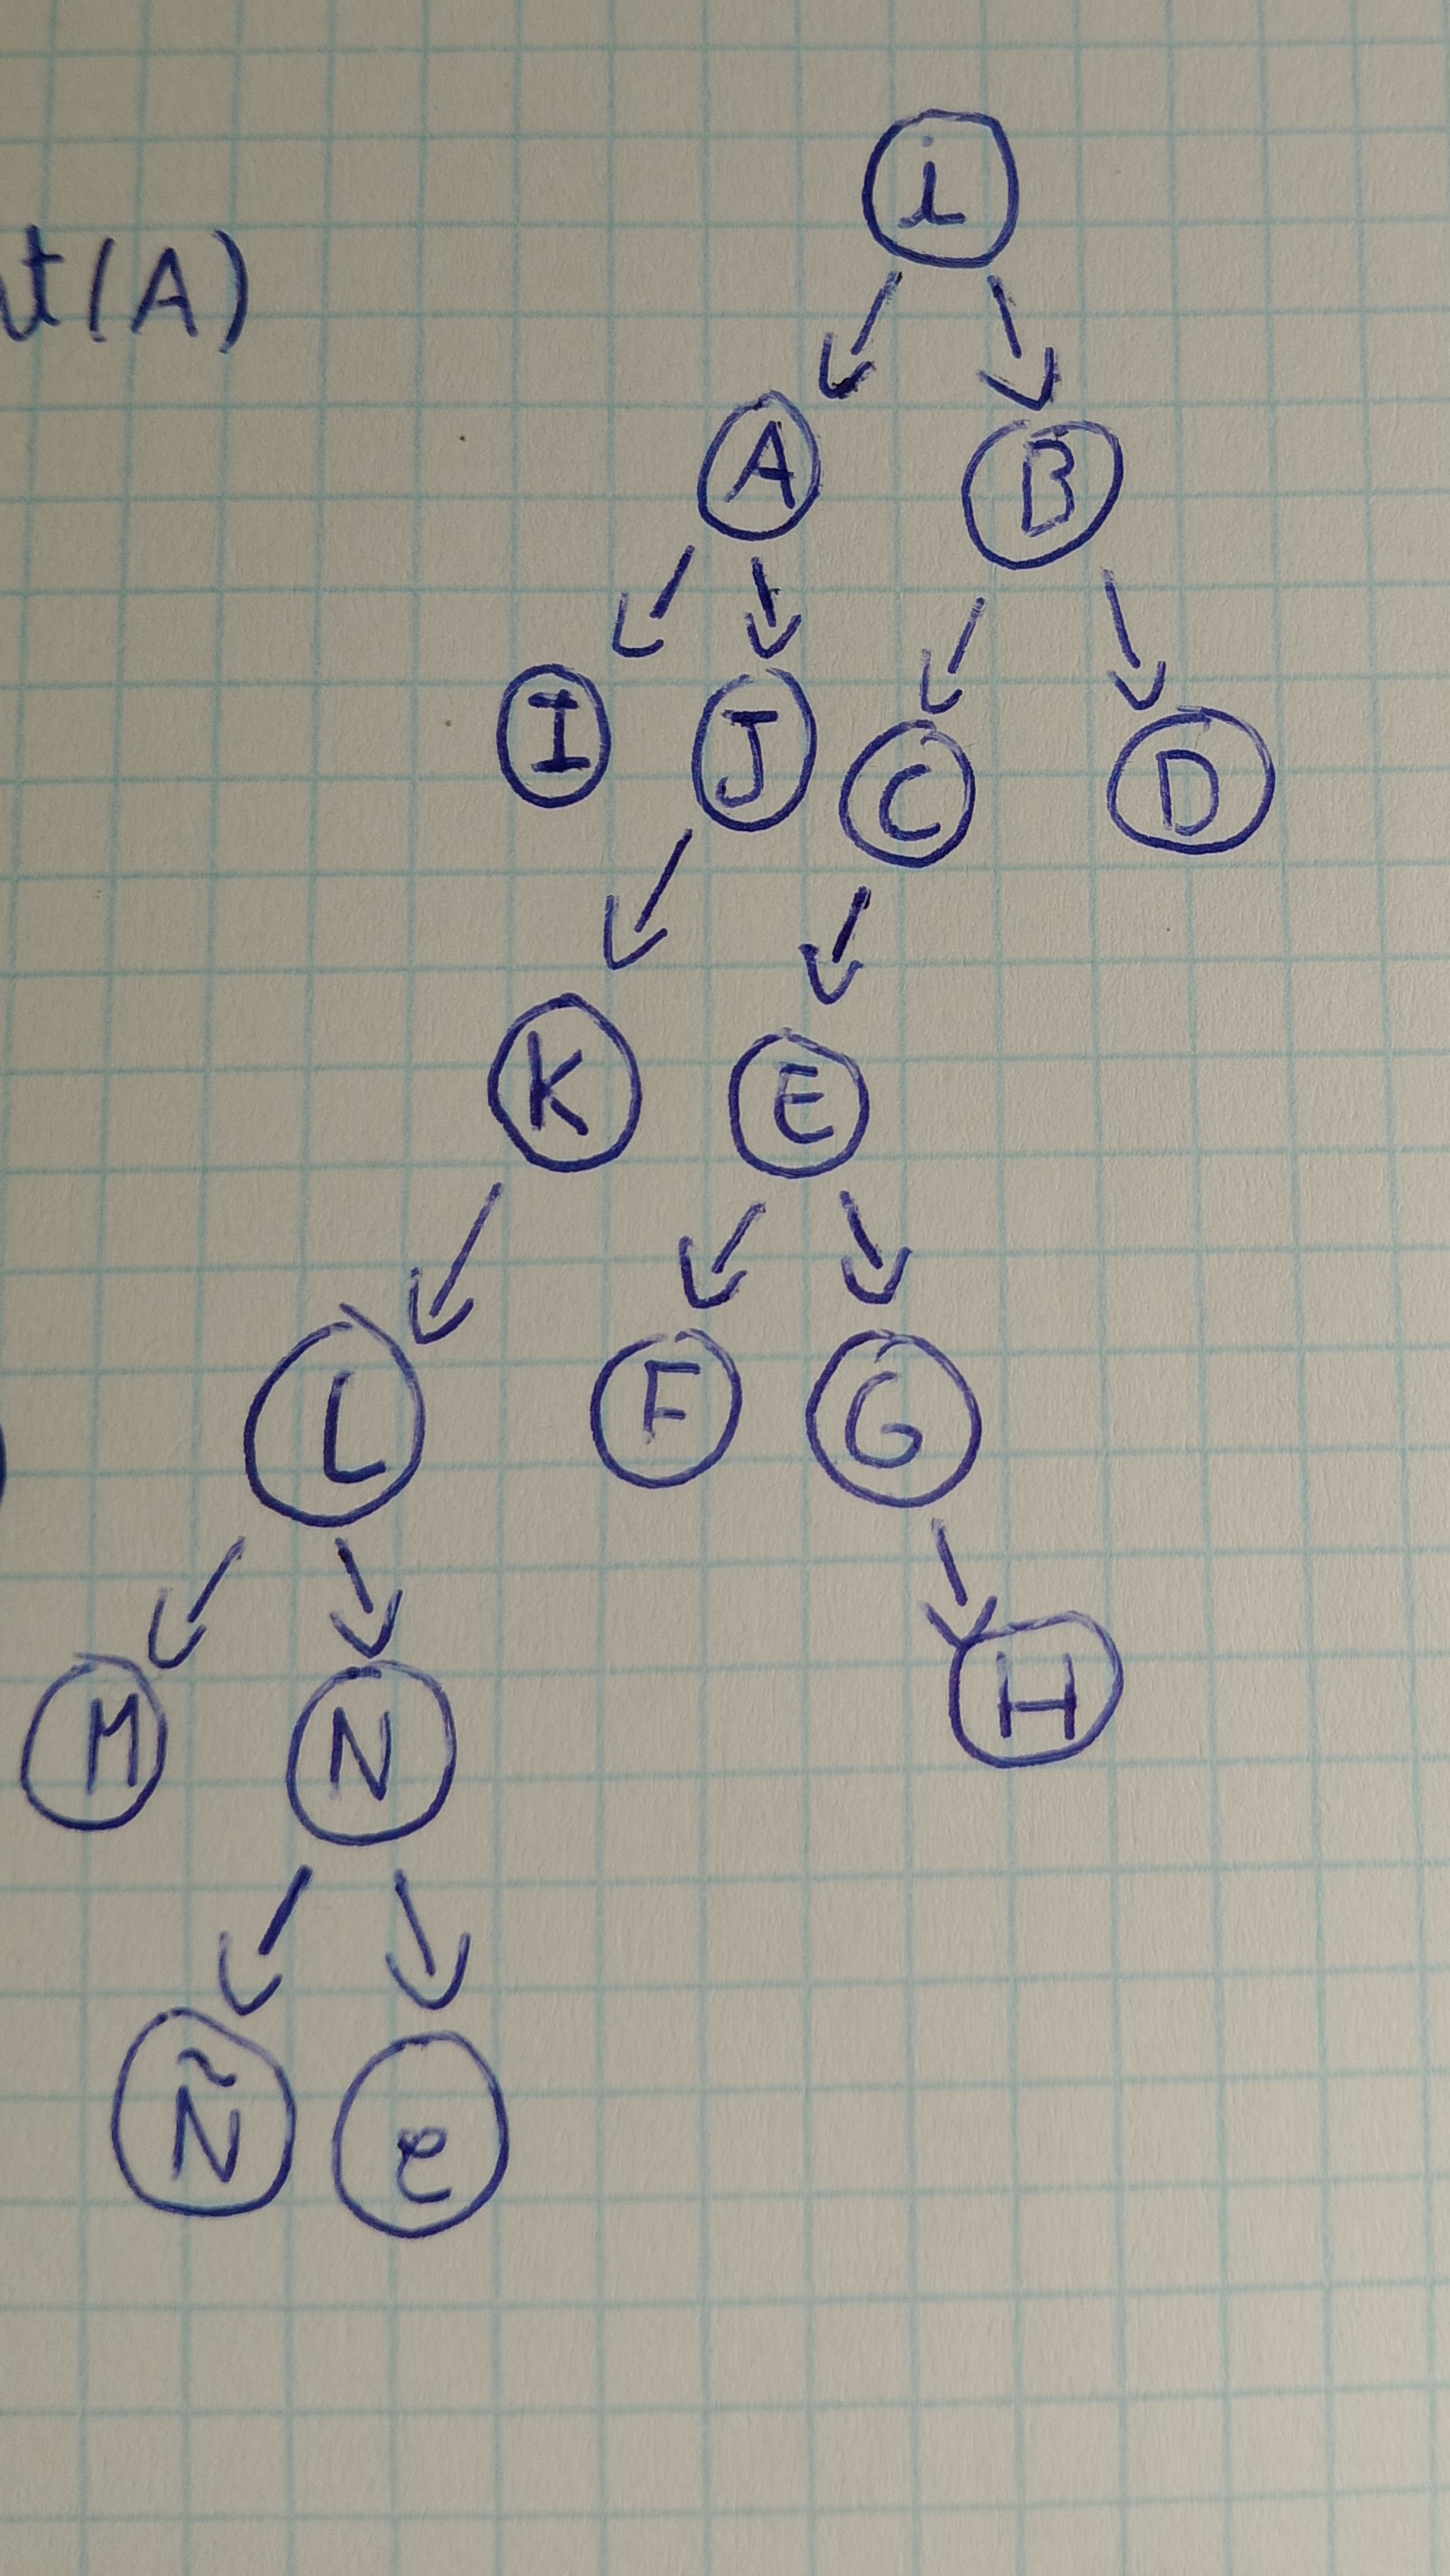 i
t(A)
A B
I J C D
K E
L F G
M N H
Ñ e